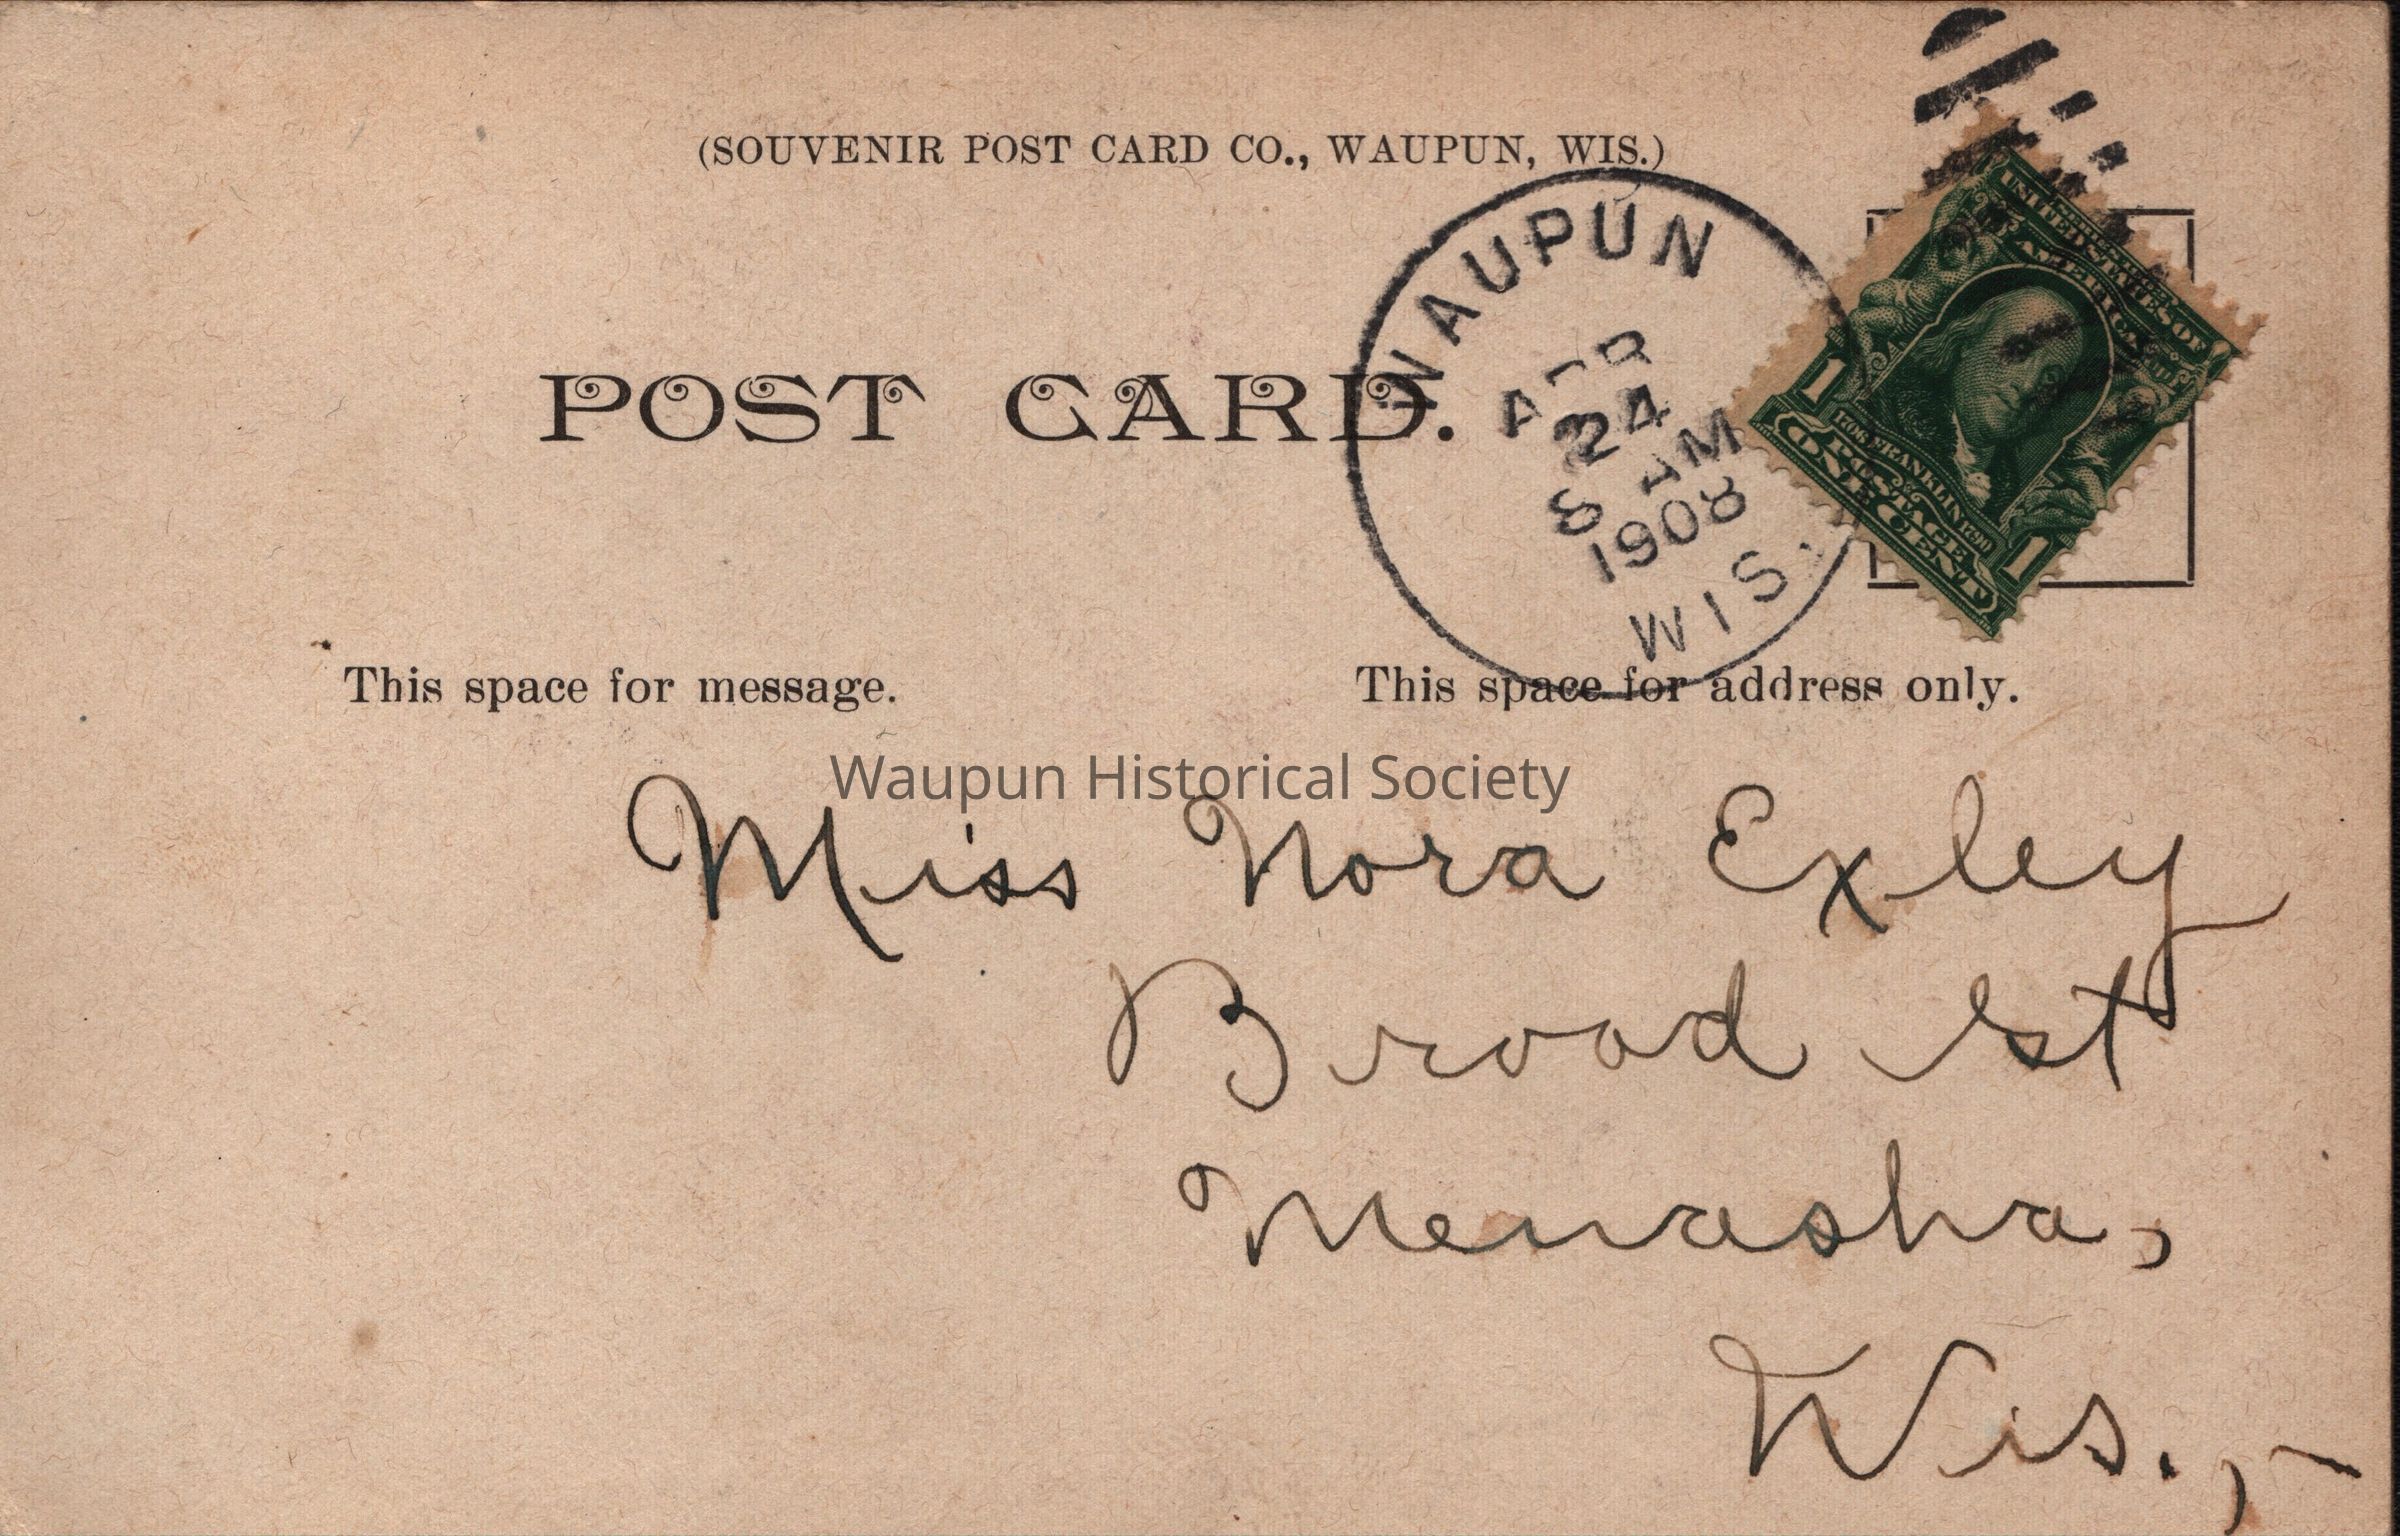 (SOUVENIR POST CARD CO., WAUPUN, WIS.)
POST CARD.
WAUPUN
APR
24
8 AM
1908
WIS.
UNITED STATES OF
AMERICA
1706 FRANKLIN 1790
POSTAGE
1 ONE CENT 1
This space for message.
This space for address only.
Waupun Historical Society
Miss Nora Exley
Broad St
Menasha,
Wis.,-